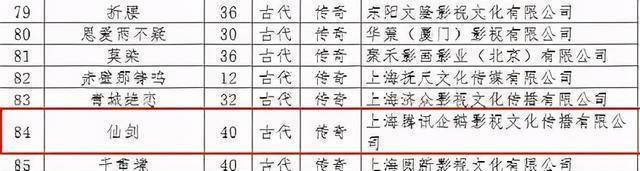 79 折腰 36 古代 传奇 东阳文隆影视文化有限公司
80 恩爱两不疑 30 古代 传奇 华策（厦门）影视有限公司
81 莫染 36 古代 传奇 聚禾影画影业（北京）有限公司
82 赤壁郎锋鸣 12 古代 传奇 上海托尺文化传媒有限公司
83 青城绝恋 32 古代 传奇 上海济众影视文化传播有限公司
84 仙剑 40 古代 传奇 上海腾讯企鹅影视文化传播有限公
司
85 千重 40 古代 传奇 上海阅新影视文化有限公司